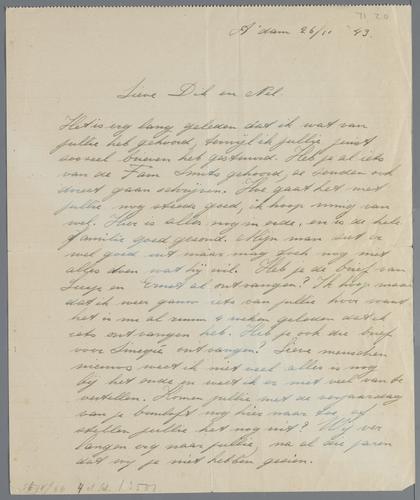 A'dam 26/11 '43.
Lieve Dik en Nel.
Het is erg lang geleden dat ik wat van
jullie heb gehoord, terwijl ik jullie juist
zooveel brieven heb gestuurd. Heb je al iets
van de Fam Smits gehoord, ze zouden ook
direct gaan schrijven. Hoe gaat het met
jullie, nog steeds goed, ik hoop innig van
wel. Hier is alles nog in orde, en is de hele
familie goed gezond. Mijn man ziet er
wel goed uit maar mag toch nog niet
alles doen wat hij wil. Heb je de brief van
en Ernst al ontvangen? Ik hoop maar
dat ik weer gauw iets van jullie hoor want
het is nu al ruim 4 weken geleden dat ik
iets ontvangen heb. Heb je ook die brief
voor ontvangen? Lieve menschen
nieuws weet ik niet veel alles is nog
bij het oude je weet ik er niet veel van te
vertellen. Komen jullie met de verjaardag
van je nog hier naar toe, of
stellen jullie het nog uit? Wij ver
langen erg naar jullie, na al die jaren
dat wij je niet hebben gezien.